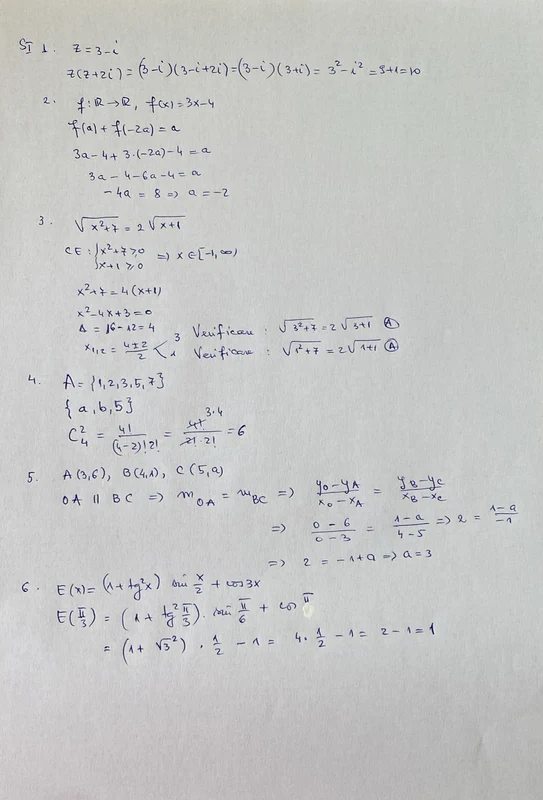 SI 1. z = 3-i
z(z+2i) = (3-i)(3-i+2i) = (3-i)(3+i) = 3²-i² = 9+1 = 10
2. f: ℝ→ℝ, f(x) = 3x-4
f(a) + f(-2a) = a
3a-4+3·(-2a)-4 = a
3a-4-6a-4 = a
-4a = 8 => a = -2
3. √(x²+7) = 2√(x+1)
CE: { x²+7 ≥ 0 => x ∈ [-1, ∞)
x+1 ≥ 0
x²+7 = 4(x+1)
x²-4x+3 = 0
Δ = 16-12 = 4
x₁,₂ = (4±2)/2 < 3 Verificare: √(3²+7) = 2√(3+1) (A)
1 Verificare: √(1²+7) = 2√(1+1) (A)
4. A = {1,2,3,5,7}
{a,b,5}
C₄² = 4!/((4-2)!2!) = 4!/(2!·2!) = 6
3·4
5. A(3,6), B(4,1), C(5,a)
OA || BC => m_OA = m_BC => (y_O-y_A)/(x_O-x_A) = (y_B-y_C)/(x_B-x_C)
=> (0-6)/(0-3) = (1-a)/(4-5) => 2 = (1-a)/-1
=> 2 = -1+a => a = 3
6. E(x) = (1+tg²x) sin x/2 + cos3x
E(π/3) = (1+tg² π/3) · sin π/6 + cos π
= (1+√3²) · 1/2 - 1 = 4·1/2 - 1 = 2-1 = 1